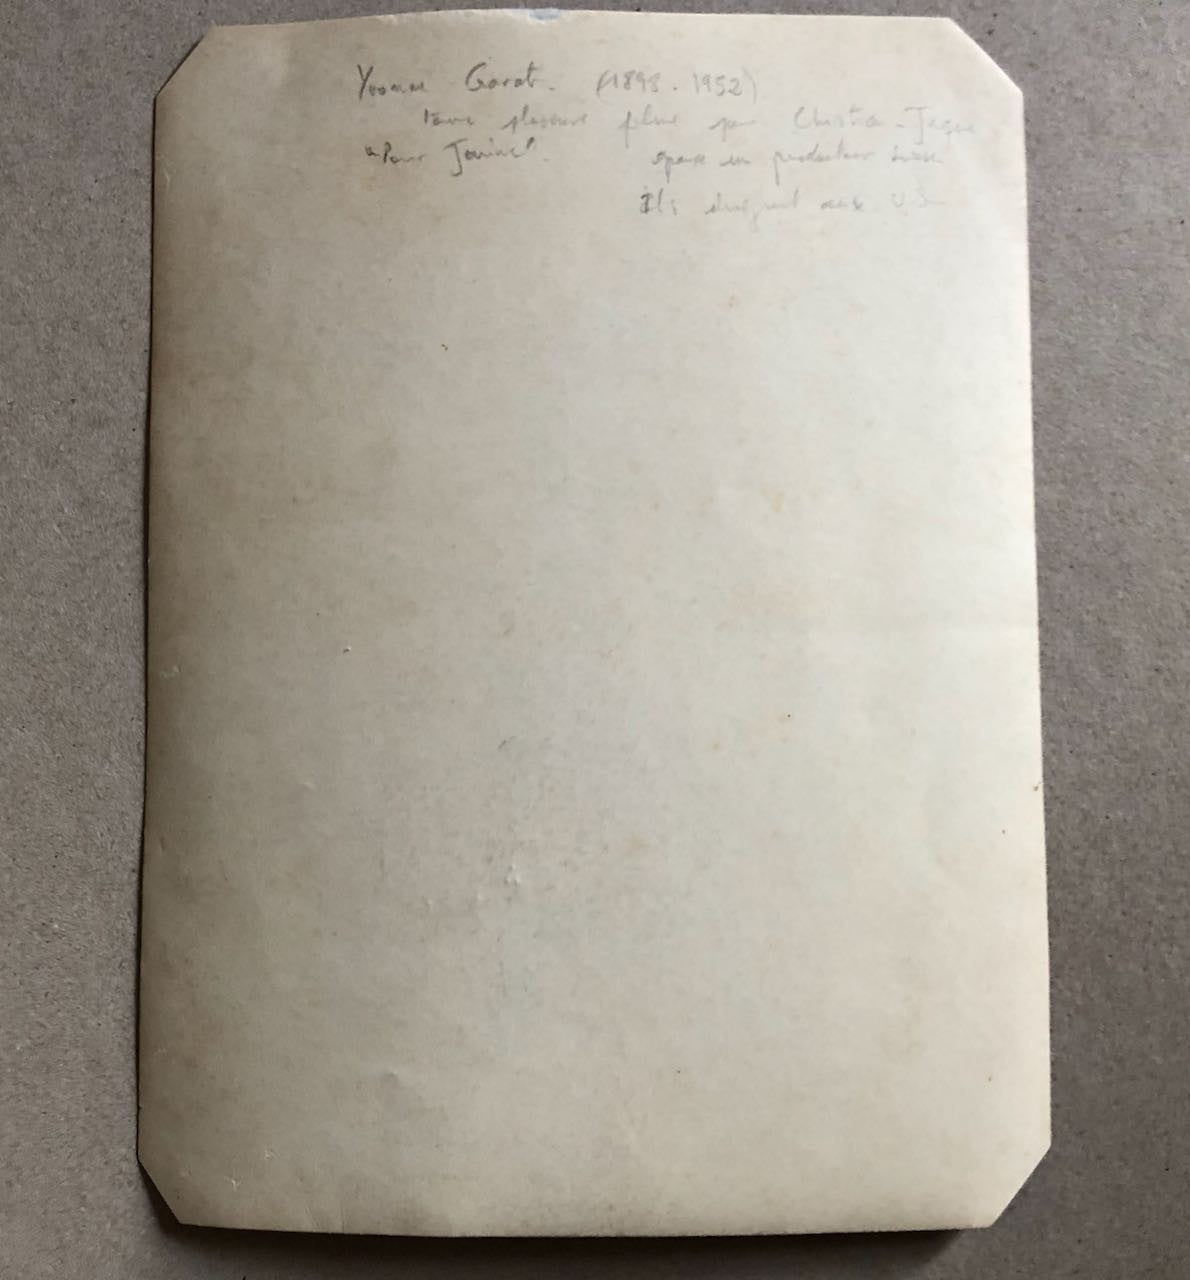 Yvonne Garat. (1898 - 1952)
tourne plusieurs films par Christian-Jaque
"Pour épouse un producteur suisse
Ils aux U.S.